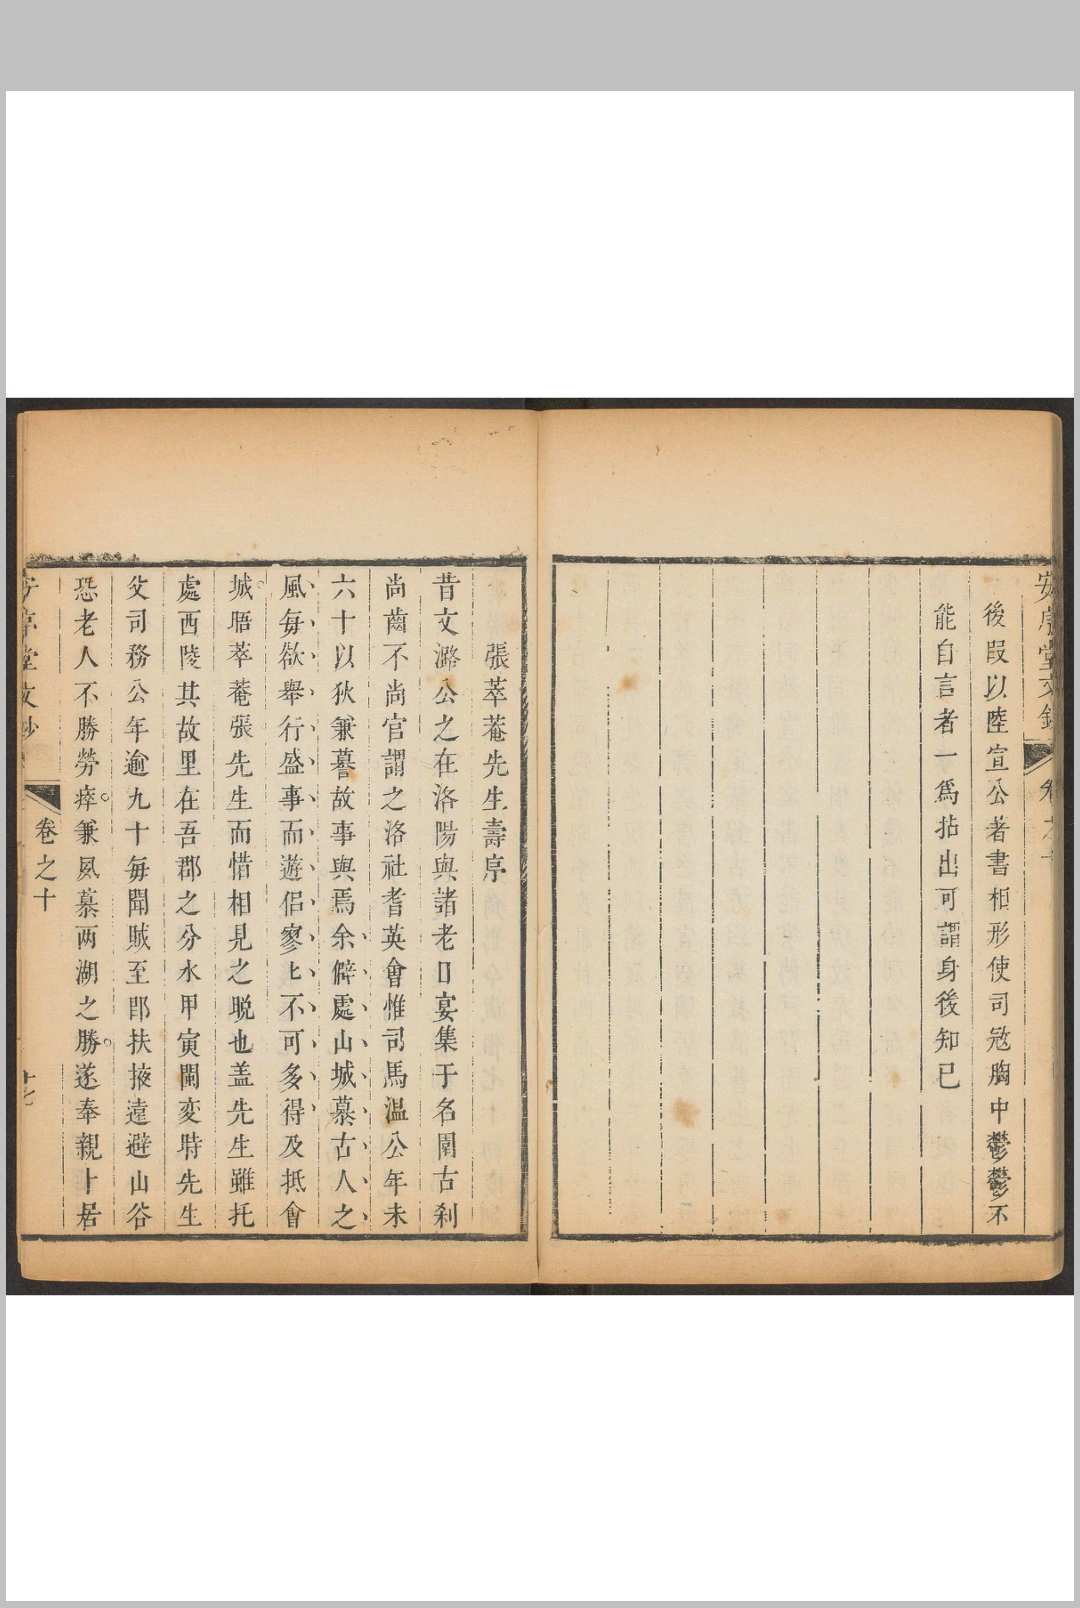 後叚以陸宣公著書相形使司寇胸中鬱鬱不
能自言者一爲拈出可謂身後知已
張萃菴先生壽序
昔文潞公之在洛陽與諸老日宴集于名園古刹
尚齒不尚官謂之洛社耆英會惟司馬溫公年未
六十以狄兼謩故事與焉余僻處山城慕古人之
風每欲舉行盛事而遊侣寥匕不可多得及抵會
城晤萃菴張先生而惜相見之晚也盖先生雖托
處西陵其故里在吾郡之分水甲寅閩変時先生
父司務公年逾九十每聞賊至郎扶掖遠避山谷
恐老人不勝勞瘁兼夙慕两湖之勝遂奉親卜居
卷之十
十七